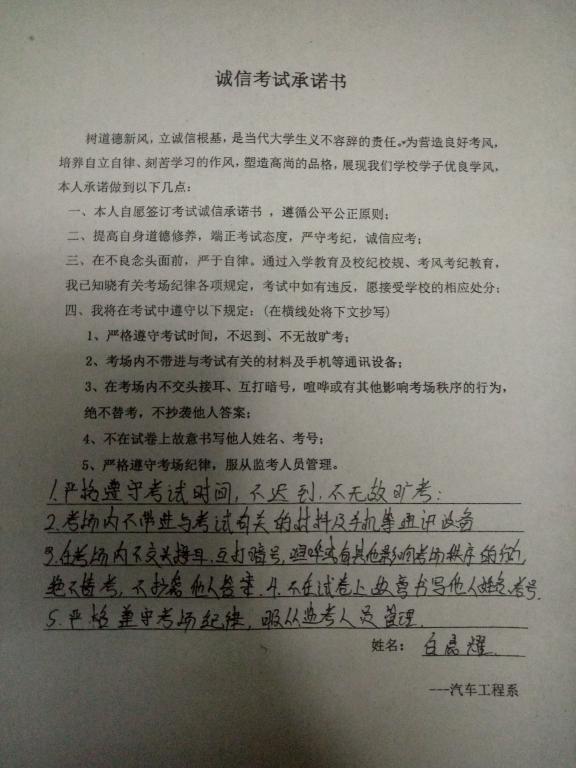 诚信考试承诺书
树道德新风，立诚信根基，是当代大学生义不容辞的责任。为营造良好考风，
培养自立自律、刻苦学习的作风，塑造高尚的品格，展现我们学校学子优良学风，
本人承诺做到以下几点：
一、本人自愿签订考试诚信承诺书 ，遵循公平公正原则；
二、提高自身道德修养，端正考试态度，严守考纪，诚信应考；
三、在不良念头面前，严于自律。通过入学教育及校纪校规、考风考纪教育，
我已知晓有关考场纪律各项规定，考试中如有违反，愿接受学校的相应处分；
四、我将在考试中遵守以下规定：(在横线处将下文抄写)
1、严格遵守考试时间，不迟到、不无故旷考；
2、考场内不带进与考试有关的材料及手机等通讯设备；
3、在考场内不交头接耳、互打暗号，喧哗或有其他影响考场秩序的行为，
绝不替考，不抄袭他人答案；
4、不在试卷上故意书写他人姓名、考号；
5、严格遵守考场纪律，服从监考人员管理。
1.严格遵守考试时间，不迟到、不无故旷考；
2.考场内不带进与考试有关的材料及手机等通讯设备
3.在考场内不交头接耳.互打暗号，喧哗或有其他影响考场秩序的行为，
绝不替考，不抄袭他人答案.4.不在试卷上故意书写他人姓名.考号.
5.严格遵守考场纪律，服从监考人员管理.
姓名：白晨耀.
---汽车工程系